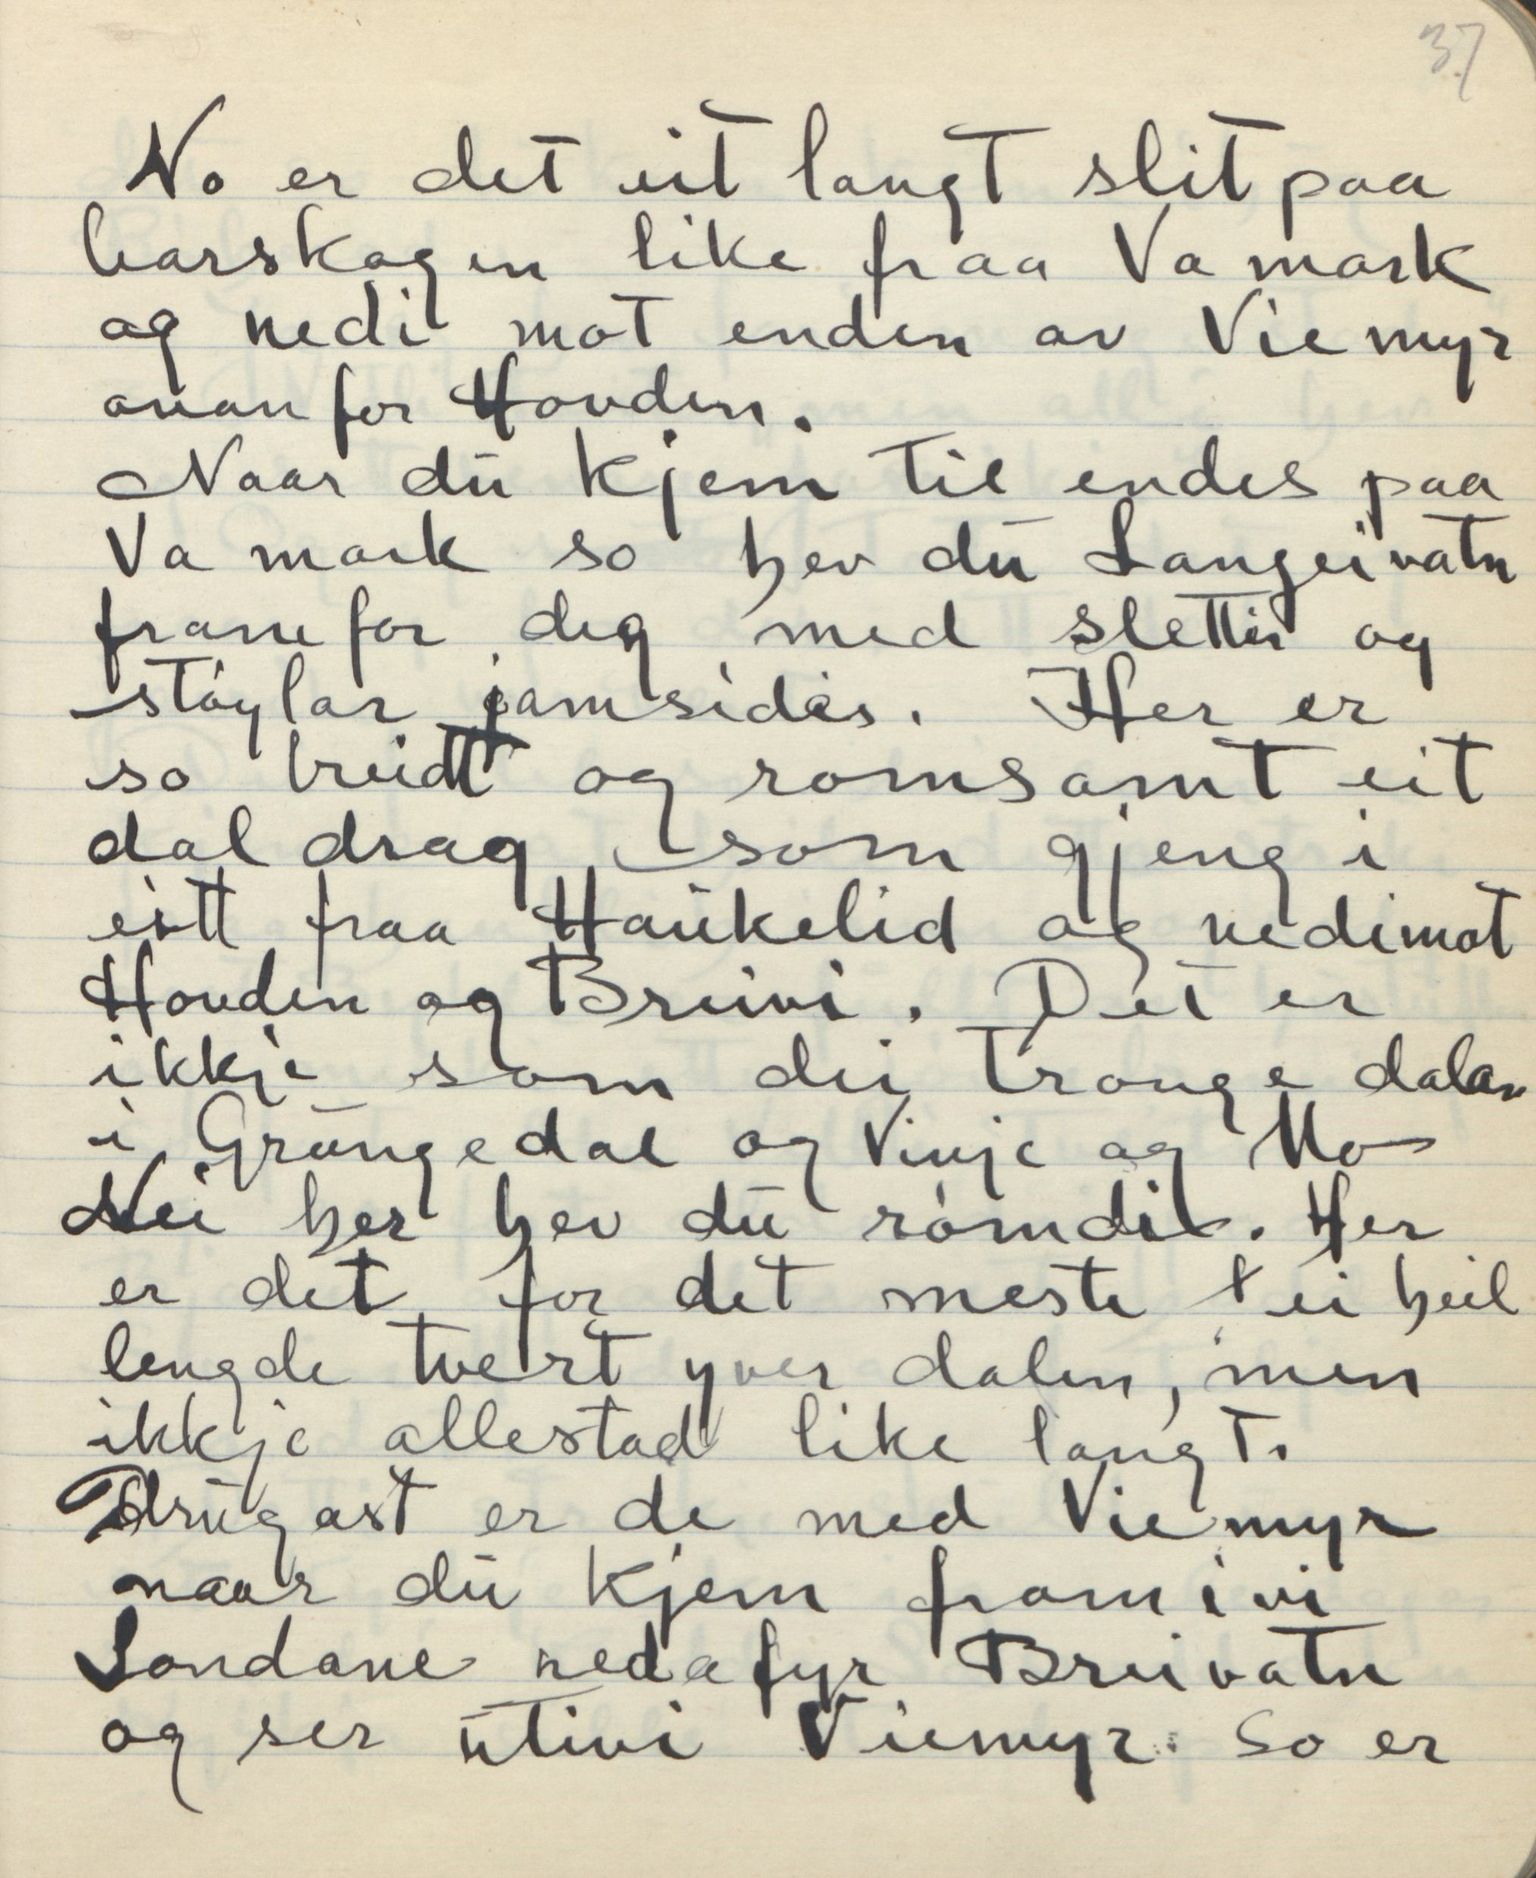 37
No er det eit langt slit paa
barskogen like fraa Vamark
og nedi mot enden av Viemyr
ovanfor Hovden.
Naar du kjem til endes paa
Vamark so hev du Langeivatn
framfor deg med slettir og
støylar jamsides. Her er
so breidt og romsamt eit
daldrag som gjeng i
eitt fraa Haukelid og nedimot
Hovden og Breivi. Det er
ikkje som dei tronge dalar
i Grungedal og Vinje og Mo
Nei her hev du romdil. Her
er det for det meste ei heil
lengde tvert yver dalen, men
ikkje allestad like langt.
Drugast er de med Viemyr
naar du kjem fram ivi
Londane nedafyr Breivatn
og ser utivi Viemyr. So er